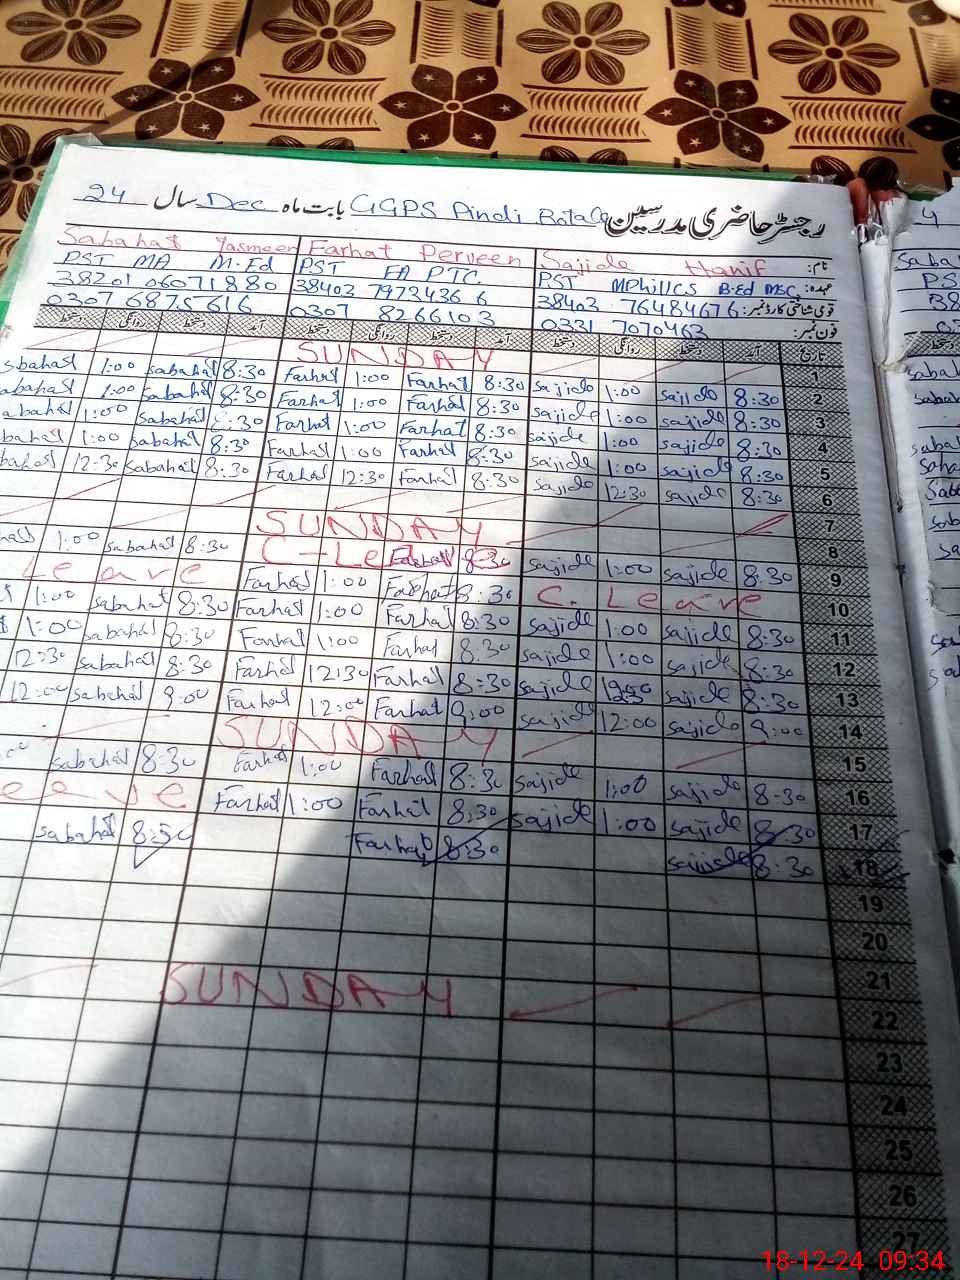 رجسٹر حاضری مدرسین GGPS Pindi بابت ماہ Dec سال 24
نام: Sajide Hanif Farhat Perveen Sabahat Yasmeen
عہدہ: PST MPhill CS B.Ed MSC PST FA PTC. PST MA M.Ed
قومی شناختی کارڈ نمبر: 38403 7648467 6 38403 7973436 6 38201 0607188 0
فون نمبر: 0331 7070463 0307 8266103 0307 6875616
تاریخ آمد دستخط روانگی دستخط آمد دستخط روانگی دستخط آمد دستخط روانگی دستخط
1 SUNDAY
2 8:30 sajide 1:00 sajide 8:30 Farhat 1:00 Farhat 8:30 sabahat 1:00 sbahat
3 8:30 sajide 1:00 sajide 8:30 Farhat 1:00 Farhat 8:30 sabahat 1:00 abahat
4 8:30 sajide 1:00 sajide 8:30 Farhat 1:00 Farhat 8:30 sabahat 1:00 abahat
5 8:30 sajide 1:00 sajide 8:30 Farhat 1:00 Farhat 8:30 sabahat 1:00 abahat
6 8:30 sajide 12:30 sajide 8:30 Farhat 12:30 Farhat 8:30 sabahat 12:30 bahat
7
8 SUNDAY
9 8:30 sajide 1:00 sajide 8:30 C-Le 8:30 sabahat 1:00
10 C. Leave 8:30 Farhat 1:00 Farhat Leave
11 8:30 sajide 1:00 sajide 8:30 Farhat 1:00 Farhat 8:30 sabahat 1:00
12 8:30 sajide 1:00 sajide 8:30 Farhat 1:00 Farhat 8:30 sabahat 1:00
13 8:30 sajide sajide 8:30 Farhat 12:30 Farhat 8:30 sabahat 12:30
14 9:00 sajide 12:00 sajide 9:00 Farhat 12:00 Farhat 9:00 sabahat 12:00
15 SUNDAY
16 8:30 sajide 1:00 sajide 8:30 Farhat 1:00 Farhat 8:30 sabahat
17 8:30 sajide 1:00 sajide 8:30 Farhat 1:00 Farhat eave
18 8:30 sajide 8:30 Farhat 8:30 sabahat
19
20
21
22 SUNDAY
23
24
25
26
27
18-12-24 09:34